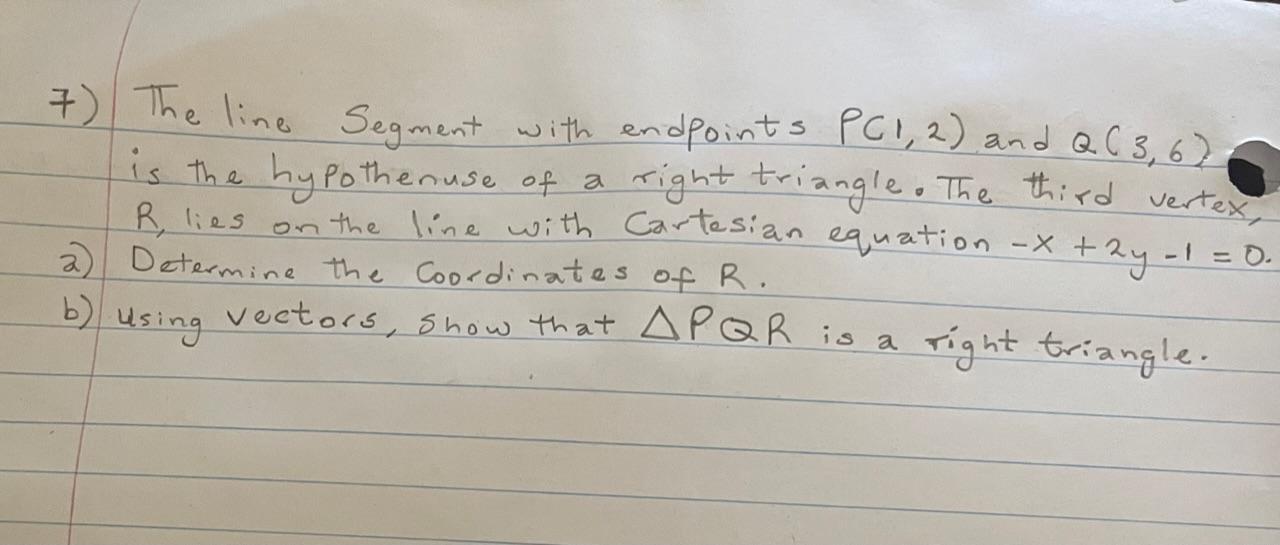 7) The line Segment with endpoints P(1,2) and Q(3,6)
is the hypothenuse of a right triangle. The third vertex,
R, lies on the line with Cartesian equation -x + 2y - 1 = 0.
a) Determine the Coordinates of R.
b) using vectors, show that △PQR is a right triangle.